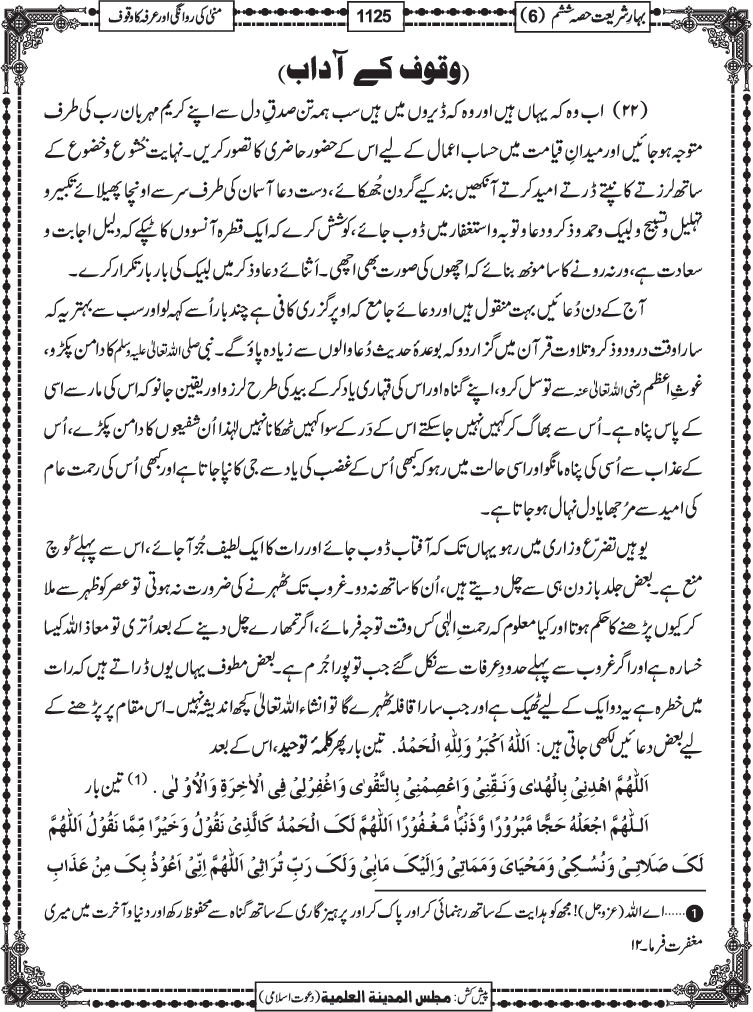 بہارِ شریعت حصہ ششم (6)
1125
منیٰ کی روانگی اور عرفہ کا وقوف
(وقوف کے آداب)
(۲۲) اب وہ کہ یہاں ہیں اور وہ کہ ڈیروں میں ہیں سب ہمہ تن صدقِ دل سے اپنے کریم مہربان رب کی طرف
متوجہ ہوجائیں اور میدانِ قیامت میں حساب اعمال کے لیے اس کے حضور حاضری کا تصور کریں۔ نہایت خُشوع و خضوع کے
ساتھ لرزتے کانپتے ڈرتے امید کرتے آنکھیں بند کیے گردن جُھکائے، دست دعا آسمان کی طرف سر سے اونچا پھیلائے تکبیر و
تہلیل و تسبیح و لبیک و حمد و ذکر و دعا و توبہ و استغفار میں ڈوب جائے، کوشش کرے کہ ایک قطرہ آنسوؤں کا ٹپکے کہ دلیل اجابت و
سعادت ہے، ورنہ رونے کا سا مونھ بنائے کہ اچھوں کی صورت بھی اچھی۔ اَثنائے دعا و ذکر میں لبیک کی بار بار تکرار کرے۔
آج کے دن دُعائیں بہت منقول ہیں اور دعائے جامع کہ اوپر گزری کافی ہے چند بار اُسے کہہ لو اور سب سے بہتر یہ کہ
سارا وقت درود و ذکر و تلاوت قرآن میں گزار دو کہ بوعدۂ حدیث دُعا والوں سے زیادہ پاؤ گے۔ نبی صلی اللہ تعالیٰ علیہ وسلم کا دامن پکڑو،
غوثِ اعظم رضی اللہ تعالیٰ عنہ سے توسل کرو، اپنے گناہ اور اس کی قہاری یاد کرکے بید کی طرح لرزو اور یقین جانو کہ اس کی مار سے اسی
کے پاس پناہ ہے۔ اُس سے بھاگ کر کہیں نہیں جاسکتے اس کے دَر کے سوا کہیں ٹھکانا نہیں لہٰذا اُن شفیعوں کا دامن پکڑے، اُس
کے عذاب سے اُسی کی پناہ مانگو اور اسی حالت میں رہو کہ کبھی اُس کے غضب کی یاد سے جی کانپا جاتا ہے اور کبھی اُس کی رحمت عام
کی امید سے مرُجھایا دل نہال ہوجاتا ہے۔
یوہیں تضرّع و زاری میں رہو یہاں تک کہ آفتاب ڈوب جائے اور رات کا ایک لطیف جُز آجائے، اس سے پہلے کُوچ
منع ہے۔ بعض جلد باز دن ہی سے چل دیتے ہیں، اُن کا ساتھ نہ دو۔ غروب تک ٹھہرنے کی ضرورت نہ ہوتی تو عصر کو ظہر سے ملا
کر کیوں پڑھنے کا حکم ہوتا اور کیا معلوم کہ رحمتِ الٰہی کس وقت توجہ فرمائے، اگر تمھارے چل دینے کے بعد اُتری تو معاذ اللہ کیسا
خسارہ ہے اور اگر غروب سے پہلے حدودِ عرفات سے نکل گئے جب تو پورا جُرم ہے۔ بعض مطوف یہاں یوں ڈراتے ہیں کہ رات
میں خطرہ ہے یہ دو ایک کے لیے ٹھیک ہے اور جب سارا قافلہ ٹھہرے گا تو انشاء اللہ تعالیٰ کچھ اندیشہ نہیں۔ اس مقام پر پڑھنے کے
لیے بعض دعائیں لکھی جاتی ہیں: اَللّٰهُ اَكْبَرُ وَلِلّٰهِ الْحَمْدُ. تین بار پھر کلمۂ توحید، اس کے بعد
اَللّٰهُمَّ اهْدِنِیْ بِالْهُدٰی وَنَقِّنِیْ وَاعْصِمْنِیْ بِالتَّقْوٰی وَاغْفِرْلِیْ فِی الْاٰخِرَةِ وَالْاُوْلٰی . (1) تین بار
اَللّٰهُمَّ اجْعَلْهُ حَجًّا مَّبْرُوْرًا وَّذَنْبًا مَّغْفُوْرًا اَللّٰهُمَّ لَكَ الْحَمْدُ كَالَّذِیْ نَقُوْلُ وَخَيْرًا مِّمَّا نَقُوْلُ اَللّٰهُمَّ
لَكَ صَلَاتِیْ وَنُسُكِیْ وَمَحْيَایَ وَمَمَاتِیْ وَاِلَيْكَ مَاٰبِیْ وَلَكَ رَبِّ تُرَاثِیْ اَللّٰهُمَّ اِنِّیْ اَعُوْذُ بِكَ مِنْ عَذَابِ
1 ......اے اللہ (عزوجل)! مجھ کو ہدایت کے ساتھ رہنمائی کر اور پاک کر اور پرہیزگاری کے ساتھ گناہ سے محفوظ رکھ اور دنیا و آخرت میں میری
مغفرت فرما۔ ۱۲
پیش کش: مجلس المدينة العلمية (دعوت اسلامی)